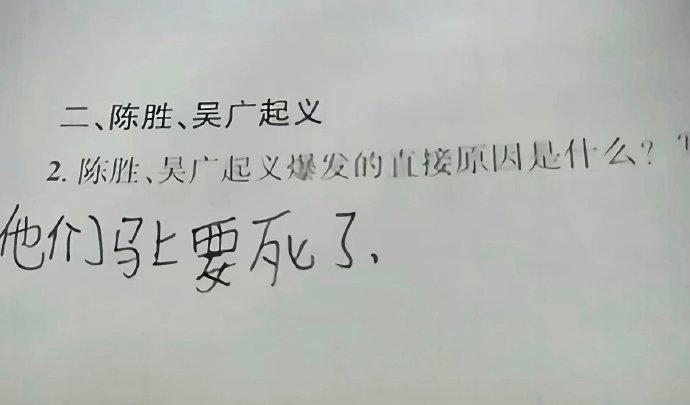 二、陈胜、吴广起义
2. 陈胜、吴广起义爆发的直接原因是什么？
他们马上要死了.